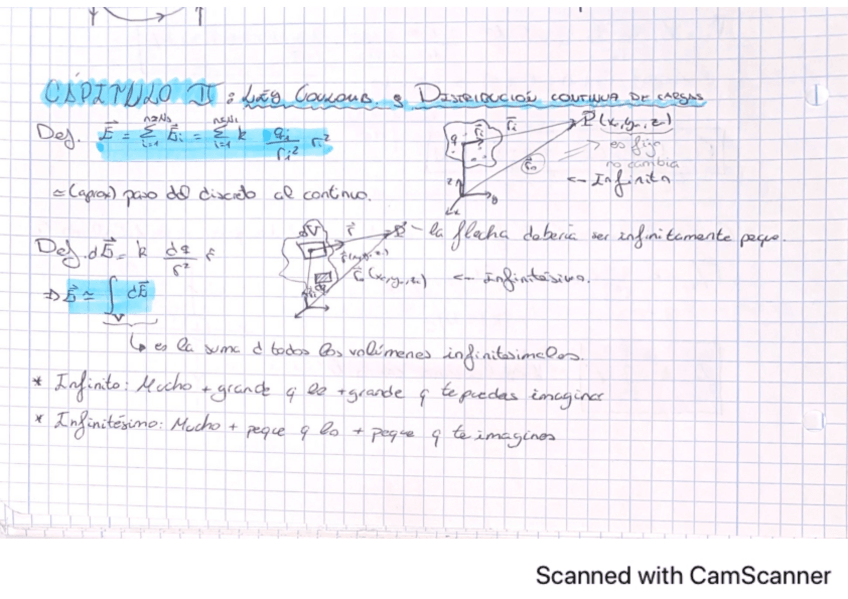 CAPITULO II : Ley Coulomb. y Distribución continua de cargas
Def. E⃗ = Σ E⃗i = Σ k qi/ri² r̂i
P(x,y,z)
es fijo
no cambia
≃ (aprox) paso del discreto al continuo.
← Infinito
Def. dE⃗ = k dq/r² r̂
dV r⃗ P – la flecha debería ser infinitamente peque.
⇒ E⃗ ≃ ∫v dE⃗
← Infinitésimo.
↳ es la suma d todos los volúmenes infinitesimales.
* Infinito: Mucho + grande q lo + grande q te puedas imaginar
* Infinitésimo: Mucho + peque q lo + peque q te imagines
Scanned with CamScanner